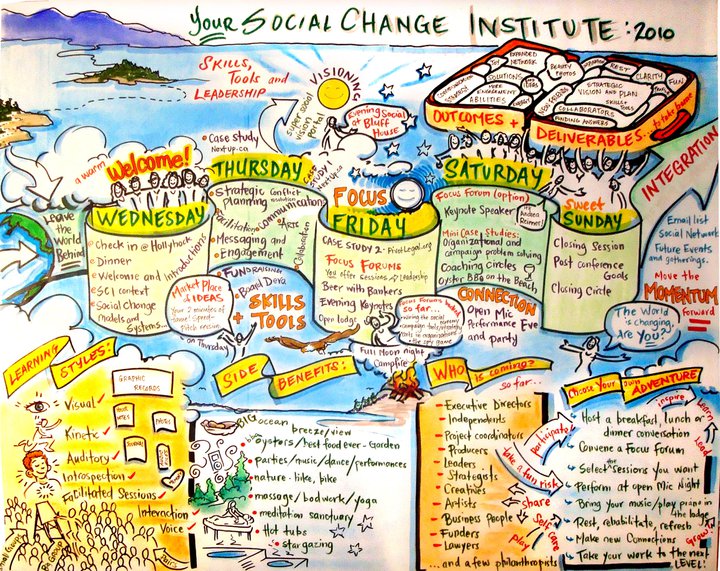 Your SOCIAL CHANGE INSTITUTE: 2010
SKILLS,
TOOLS and
LEADERSHIP
VISIONING
Super social
vision
Portal
Evening Social
at Bluff
House
EXPANDED
NETWORK
JOY
SOLUTIONS
BEAUTY
PHOTOS
REST
CLARITY
FUN
CONVERSATION
MORE
ENGAGEMENT
ABILITIES
NEW FRIENDS
STRATEGIC
VISION AND PLAN
SKILLS+
TOOLS
COLLABORATORS
FINDING ANSWERS
OUTCOMES +
DELIVERABLES
to take home
INTEGRATION
a warm
Welcome!
WEDNESDAY
Check in @ Hollyhock
Dinner
Welcome and Introductions
SCI context
Social Change
models and
Systems...
Leave
the
World
Behind
Case study
Nextup.ca
THURSDAY
CASE
STUDY 1
Nextup.ca
Strategic
planning
Conflict
resolution
Facilitation
Communications
ART
Messaging and
Engagement
Collaboration
FUNDRAISING
Board Dev.
Market Place
of IDEAS
Your 2 minutes of
fame! Speed-
Pitch session
on Thursday
+
SKILLS
TOOLS
FOCUS
FRIDAY
CASE STUDY 2 - PivotLegal.org
FOCUS FORUMS
You offer sessions of leadership
Beer with Bankers
Evening Keynotes
Open lodge
Focus Forums board
so far...
Full Moon night
Campfire
SATURDAY
Focus Forum (option)
Keynote Speaker
Andrea
Reimer!
Mini Case Studies:
Organizational and
campaign problem solving
Coaching Circles
Oyster BBQ on the Beach
CONNECTION
Open Mic
Performance Eve
and party
Sweet
SUNDAY
Closing Session
Post conference
Goals
Closing Circle
Email list
Social Network
Future Events
and gatherings.
Move the
MOMENTUM
forward
The World
is changing,
Are YOU?
LEARNING STYLES:
GRAPHIC
RECORDS
Visual
Kinetic
Auditory
Introspection
Facilitated Sessions
Interaction
Voice
YOUR
NOTES
PHOTOS
JOURNAL
Pairs
SIDE BENEFITS:
BIG ocean breeze/view
oysters/best food ever - Garden
parties/music/dance/performances
nature - hike, bike
massage/bodwork/yoga
meditation sanctuary
Hot tubs
stargazing
WHO is coming?
so far...
Executive Directors
Independents
Project coordinators
Producers
Leaders
Strategists
Creatives
Artists
Business People
Funders
Lawyers
...and a few philanthropists
participate
take a fun risk
share
Self
care
play
Choose Your Own ADVENTURE
inspire
Learn
Lead
Grow
Host a breakfast, lunch or
dinner conversation
Convene a Focus Forum
Select Sessions you want
Perform at open Mic Night
Bring your music/play piano in
the lodge
Rest, rehabilitate, refresh
Make new Connections
Take your work to the next
LEVEL!